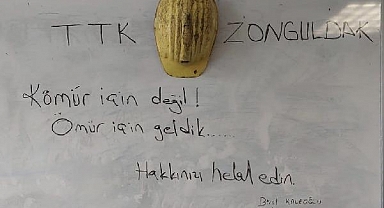 TTK ZONGULDAK
Kömür için değil!
Ömür için geldik......
Hakkınızı helal edin.